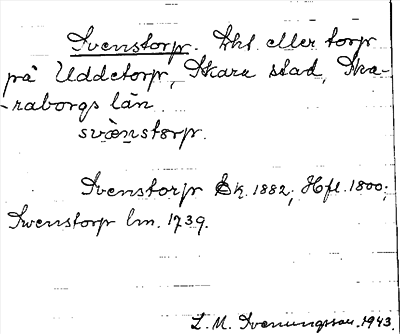 Svenstorp. Lht eller torp
på Uddetorp, Skara stad, Ska-
-raborgs län.
svæ̀nstɔrp.
Svenstorp Ek. 1882; Hfl. 1800;
Swenstorp lm. 1739.
L. M. Svenungsson. 1943.